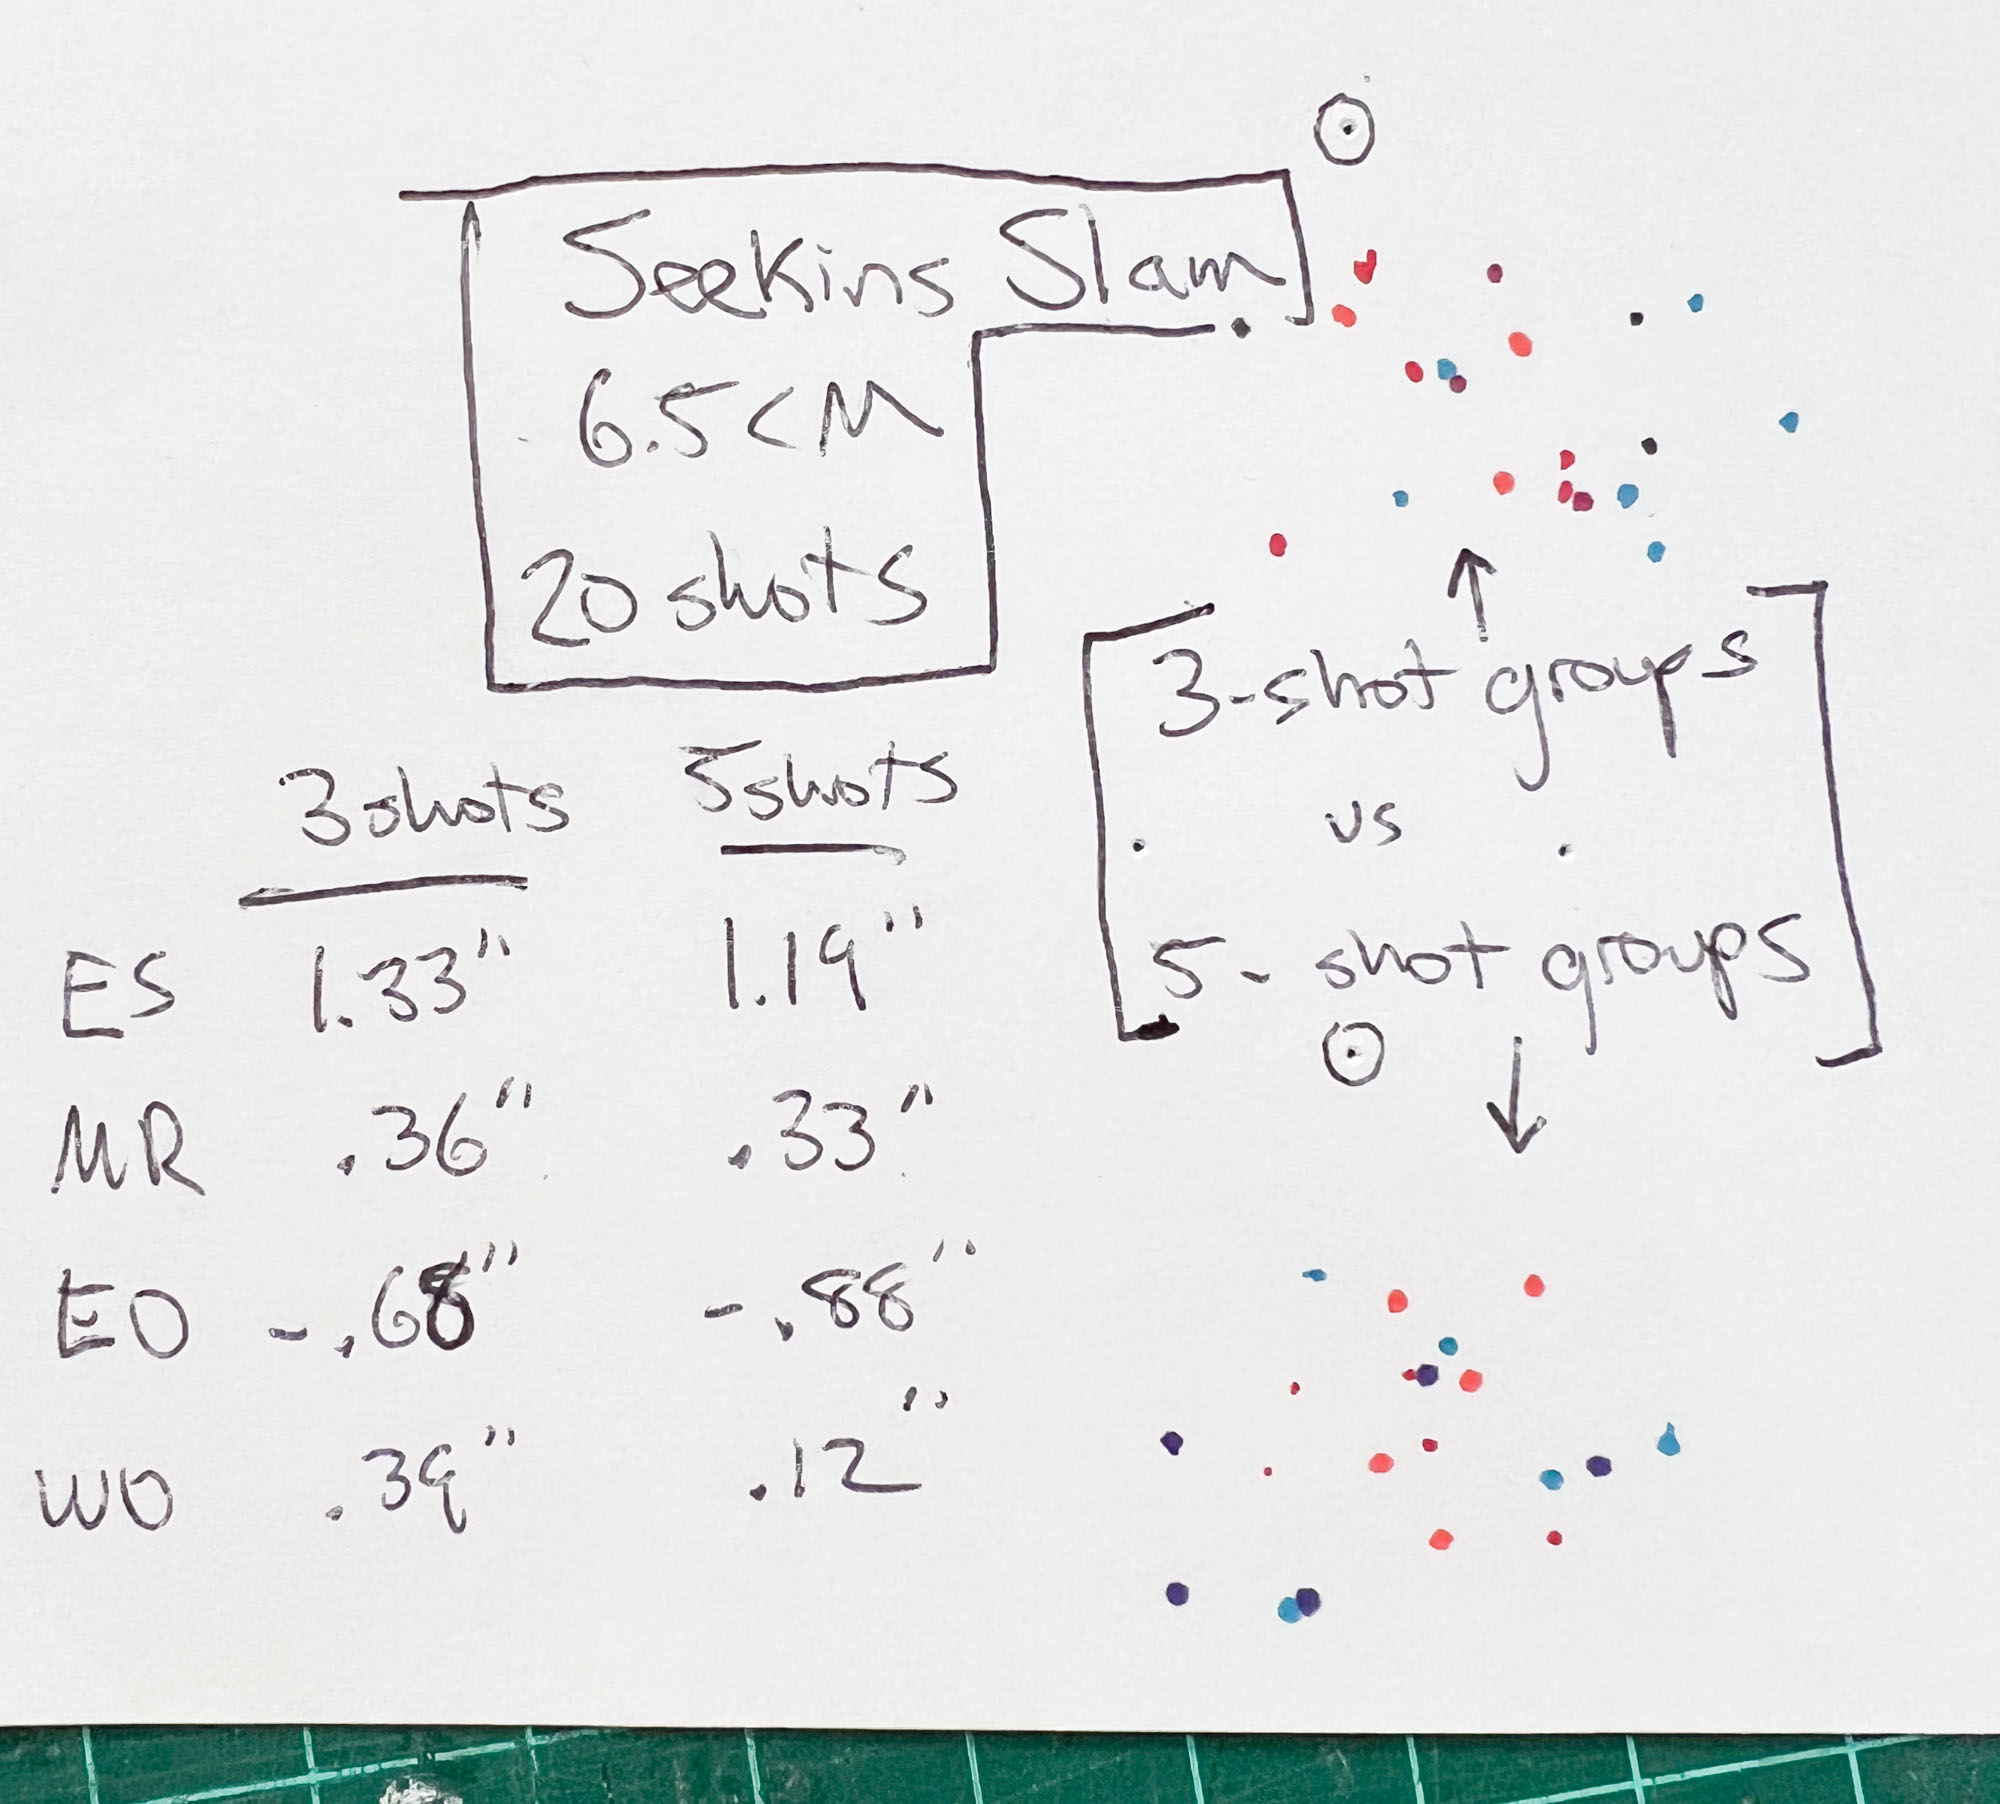 Seekins Slam
6.5 CM
20 shots
3-shot groups
vs
5-shot groups
3 shots 5 shots
ES 1.33" 1.19"
MR .36" .33"
EO -.68" -.88"
WO .39" .12"